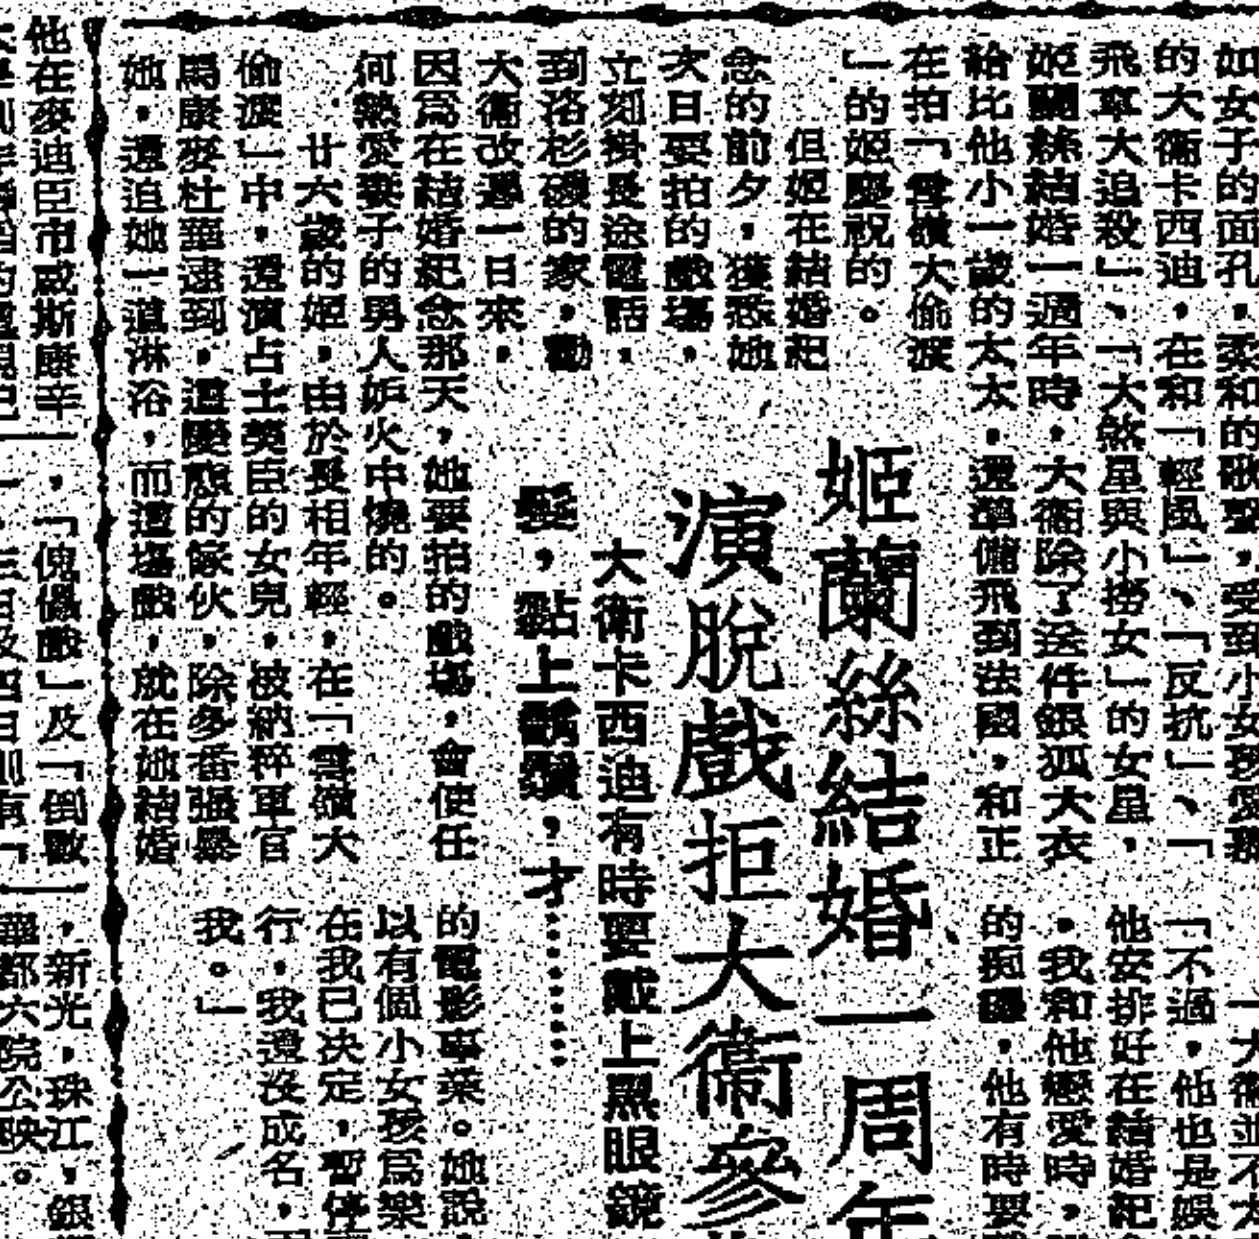 如女子的面孔,柔和的歌聲,受到小女孩愛
的大衞卡西迪,在和「輕風」、「反抗」、「
飛車大追殺」、「大煞星與小撈女」的女星,
姬蘭絲結婚一週年時,大衞除了送件銀狐大衣
給比他小一歲的太太,還準備飛到法國,和正
在拍「雪嶺大偷渡
」的姬慶祝的。
但姬在結婚紀
念的前夕,獲悉她
次日要拍的戲場,
立刻掛長途電話,
到洛杉磯的家,勸
大衞改過一日來,
因爲在結婚紀念那天,她要拍的戲場,會使任
何熱愛妻子的男人妒火中燒的。
廿六歲的姬,由於長相年輕,在「雪嶺大
偷渡」中,還演占士美臣的女兒,被納粹軍官
馬康麥杜華逮到,這變態的傢伙,除多番強暴
她,還迫她一道淋浴,而這場戲,就在她結婚
姬蘭絲結婚一周年
演脫戲拒大衞參
大衞卡西迪有時要戴上黑眼鏡
髮,黏上鬍鬚,才……
一大衞並不
「不過,他也是娛
他安排好在結婚紀
。我和他戀愛時,
的痴纏,他有時要
的電影事業。她說
以有個小女孩爲樂
在我已决定,暫停
行,我還沒成名,
我。」
他在麥迪臣市威斯康辛
,「傀儡戲」及「倒數
,新光,珠江,銀
都六院公映。